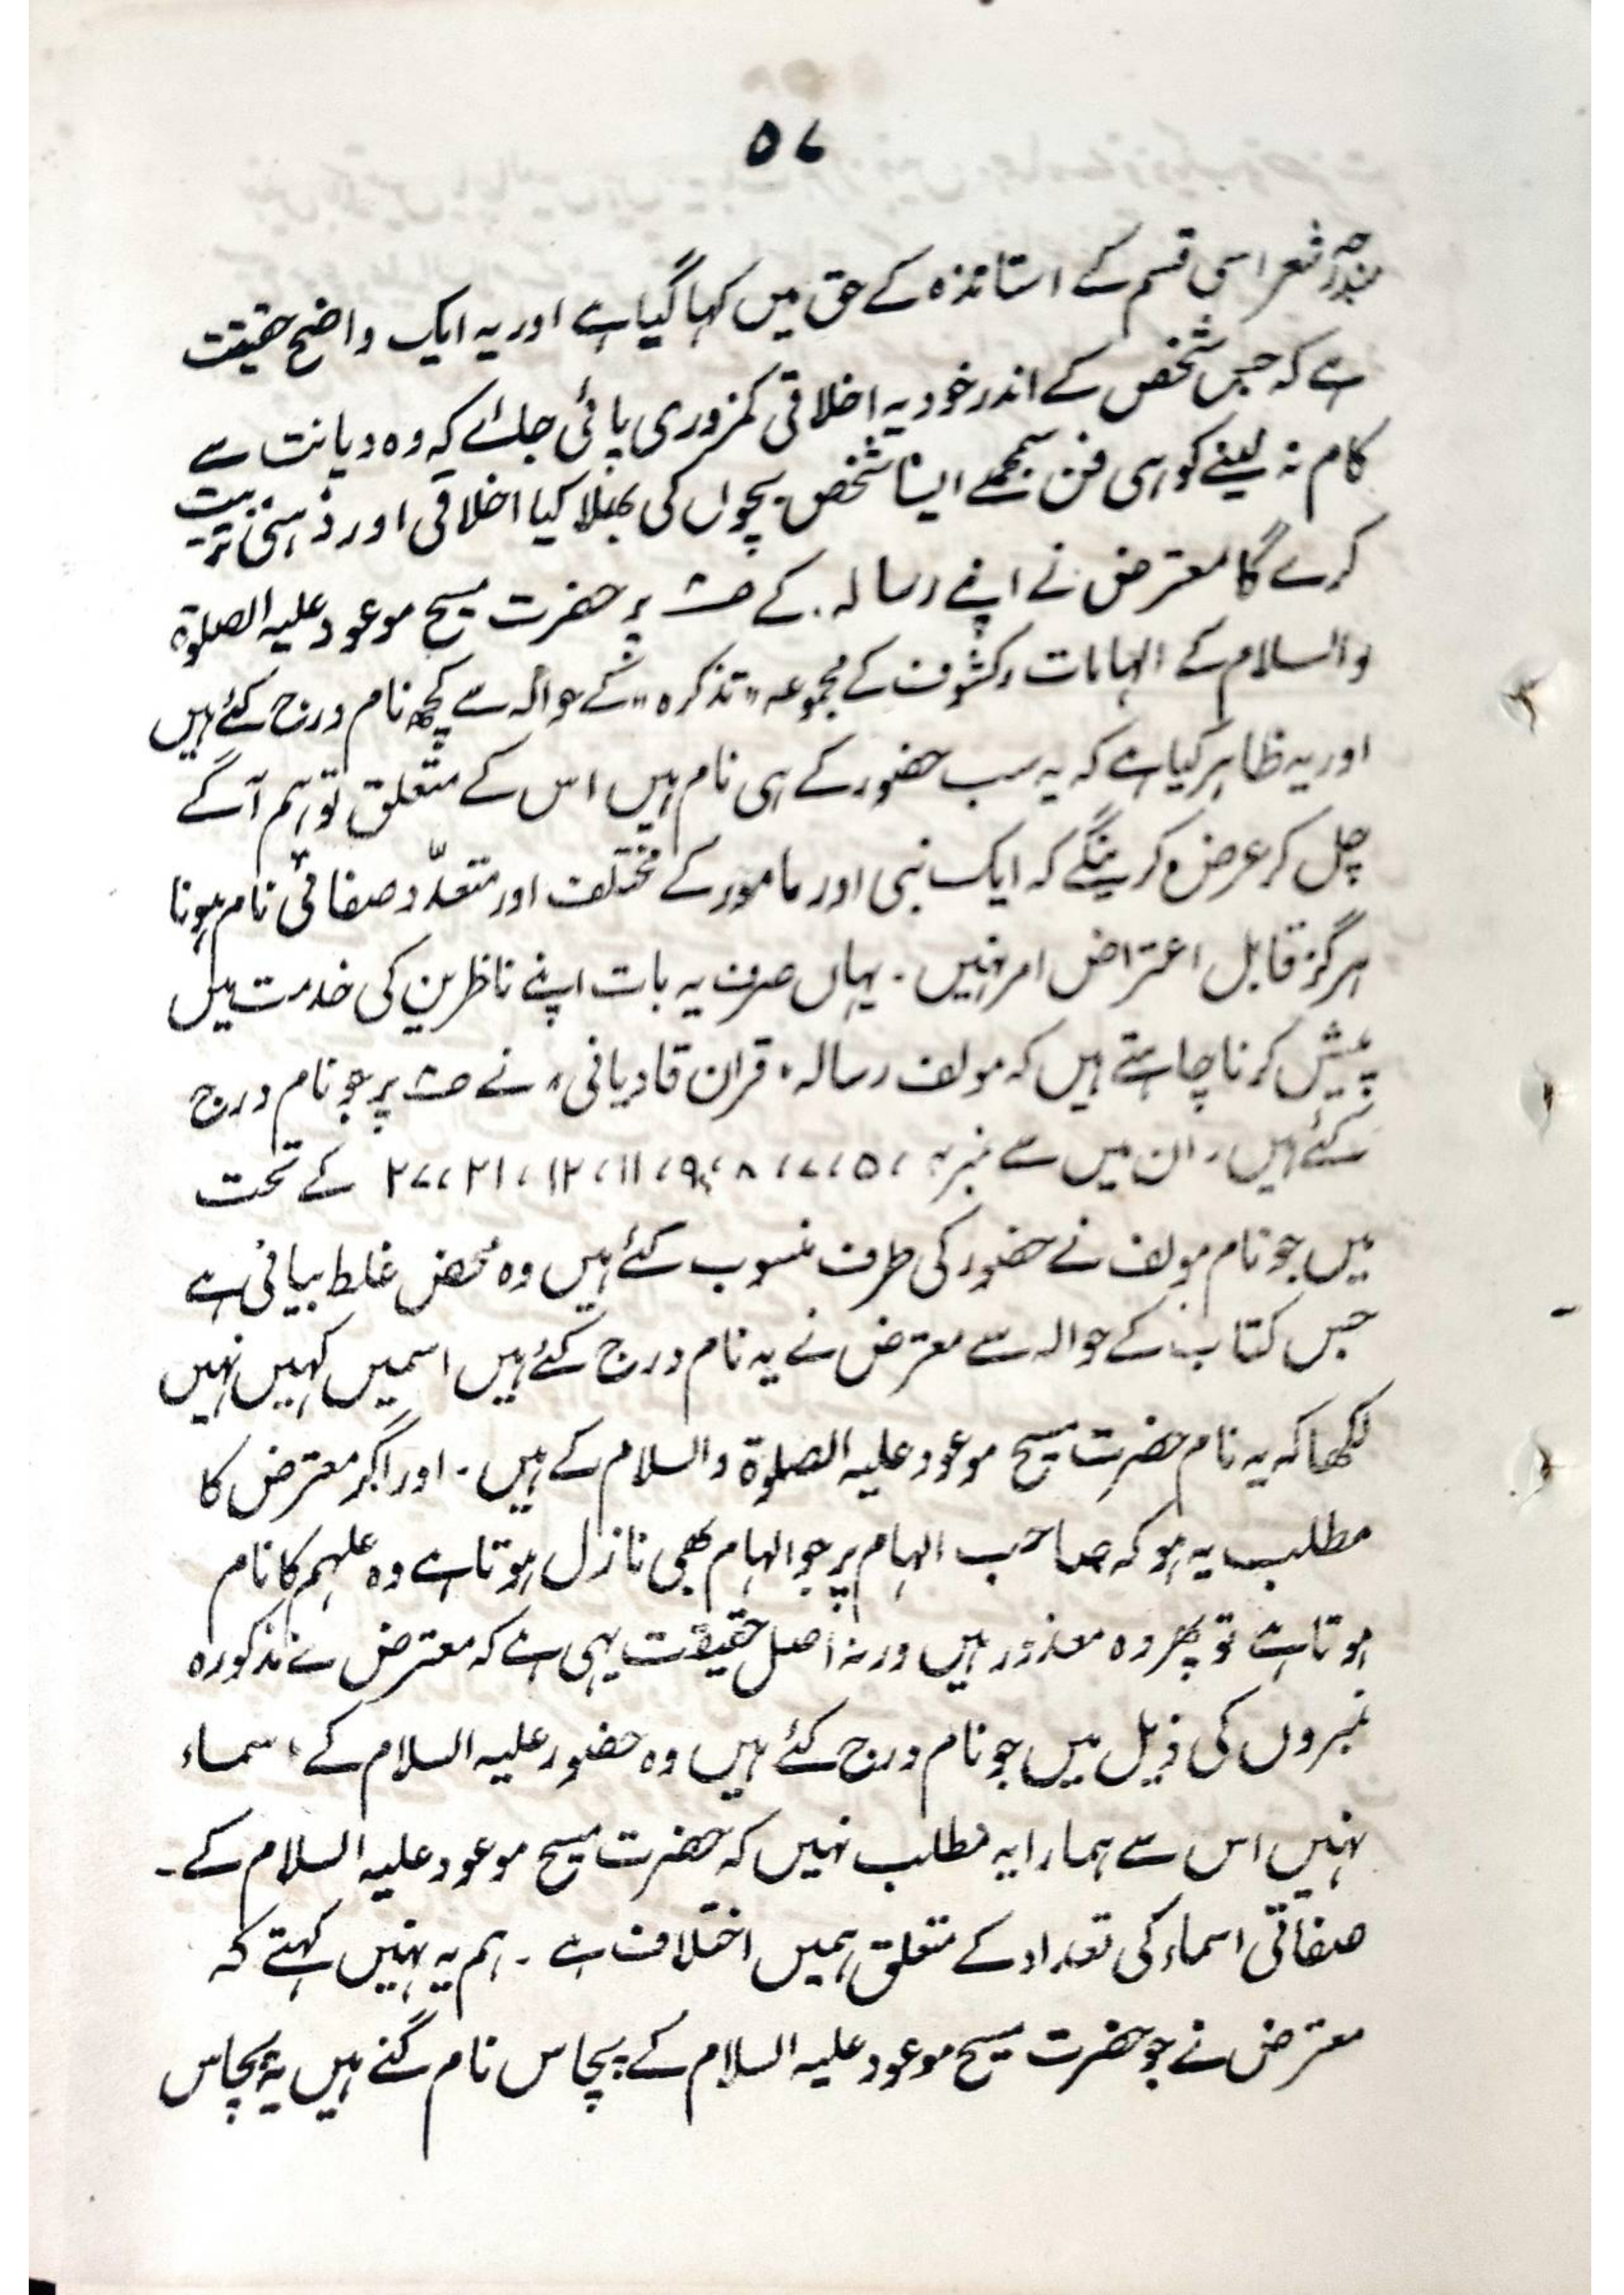 ۵۷
مندرجہ شعر اسی قسم کے استاتذہ کے حق میں کہا گیا ہے اور یہ ایک واضح حقیقت
ہے کہ جس شخص کے اندر خود یہ اخلاقی کمزوری پائی جائے کہ وہ دیانت سے
کام نہ لینے کو ہی فن سمجھے ایسا شخص بچوں کی بھلا کیا اخلاقی اور ذہنی تربیت
کرے گا معترض نے اپنے رسالہ کے پر حضرت مسیح موعود علیہ الصلوۃ
والسلام کے الہامات و کشوف کے مجموعہ "تذکرہ" کے حوالہ سے کچھ نام درج کئے ہیں
اور یہ ظاہر کیا ہے کہ یہ سب حضور کے ہی نام ہیں اس کے متعلق تو ہم آگے
چل کر عرض کرینگے کہ ایک نبی اور مامور کے مختلف اور متعدّد صفاتی نام ہونا
ہرگز قابل اعتراض امر نہیں ۔ یہاں صرف یہ بات اپنے ناظرین کی خدمت میں
پیش کرنا چاہتے ہیں کہ مولف رسالہ "قران قادیانی" نے پر جو نام درج
کئے ہیں ۔ ان میں سے نمبر ۵، ۷، ۸، ۹، ۱۱، ۱۲، ۲۱، ۲۷ کے تحت
میں جو نام مولف نے حضور کی طرف منسوب کئے ہیں وہ محض غلط بیانی ہے
جس کتاب کے حوالہ سے معترض نے یہ نام درج کئے ہیں اسمیں کہیں نہیں
لکھا کہ یہ نام حضرت مسیح موعود علیہ الصلوۃ والسلام کے ہیں ۔ اور اگر معترض کا
مطلب یہ ہو کہ صاحب الہام پر جو الہام بھی نازل ہوتا ہے وہ ملہم کا نام
ہوتا ہے تو پھر وہ معذور ہیں ورنہ اصل حقیقت یہی ہے کہ معترض نے مذکورہ
نمبروں کی ذیل میں جو نام درج کئے ہیں وہ حضور علیہ السلام کے اسماء
نہیں اس سے ہمارا یہ مطلب نہیں کہ حضرت مسیح موعود علیہ السلام کے ۔
صفاتی اسماء کی تعداد کے متعلق ہمیں اختلاف ہے ۔ ہم یہ نہیں کہتے کہ
معترض نے جو حضرت مسیح موعود علیہ السلام کے پچاس نام گنے ہیں یہ پچاس